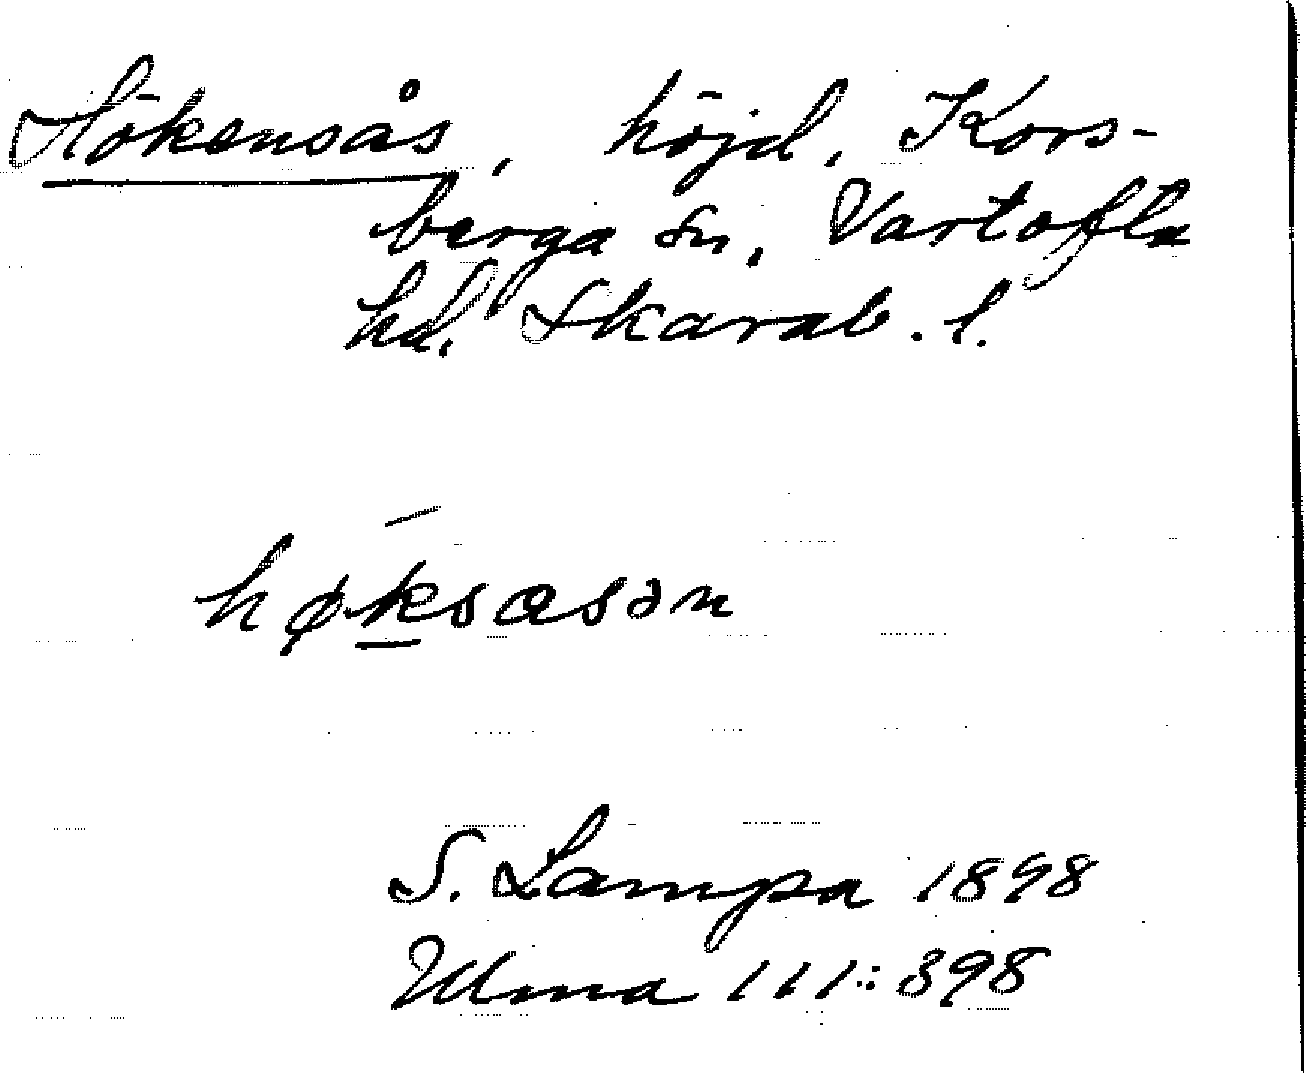 Hökensås, höjd, Kors-
berga sn, Vartofta
hd. Skarab. l.
høksasən
S. Lampa 1898
Ulma 111:398